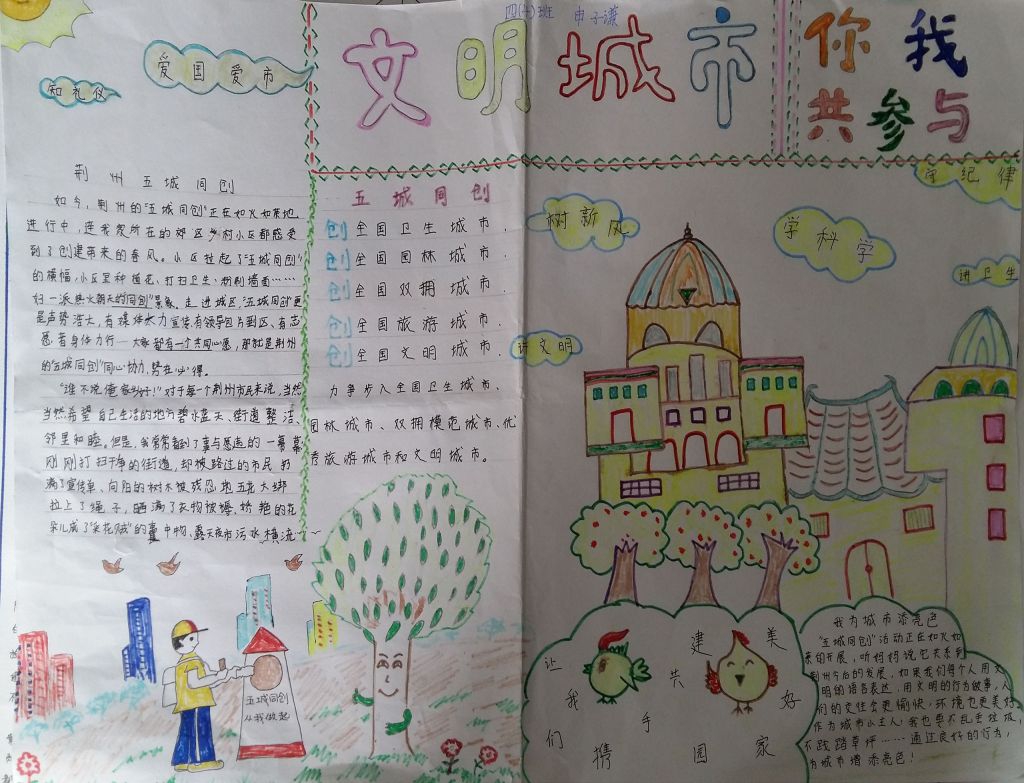 四(十)班 申子潇
文明城市
你我
共参与
爱国爱市
知礼仪
荆州五城同创
如今,荆州的"五城同创"正在如火如荼地
进行中,连我家所在的郊区乡村小区都感受
到了创建带来的春风。小区挂起了"五城同创"
的横幅,小区里种植花、打扫卫生、粉刷墙面……
归一派热火朝天的同创"景象。走进城区,"五城同创"更
是声势浩大,有媒体大力宣传,有领导包片到区,有志
愿者身体力行一大家都有一个共同心愿,那就是荆州
的"五城同创"同心协力,势在必得。
"谁不说俺家乡好!"对于每个荆州市民来说,当然
当然希望自己生活的地方碧水蓝天、街道整洁、
邻里和睦。但是,我常常看到了真与愚造的一幕幕
刚刚打扫干净的街道,却被路过的市民扔
满了宣传单、向阳的树木被残忍地五花大绑
拉上了绳子,晒满了衣物被褥、娇艳的花
朵儿成了"采花贼"的囊中物、露天夜市污水横流……
五城同创
创全国卫生城市.
创全国园林城市.
创全国双拥城市.
创全国旅游城市.
创全国文明城市.
力争步入全国卫生城市、
园林城市、双拥模范城市、优
秀旅游城市和文明城市。
守纪律
树新风
学科学
讲卫生
讲文明
五城同创
从我做起
让我们携手共建美好国家
我为城市添亮色
"五城同创"活动正在如火如
荼的开展,听妈妈说它关系到
荆州今后的发展,如果我们每个人用文
明的语言表达,用文明的行为做事,人
们的交往会更愉快,环境也更美好
作为城市小主人!我也要不乱丢垃圾,
不践踏草坪……通过良好的行为,
为城市增添亮色!